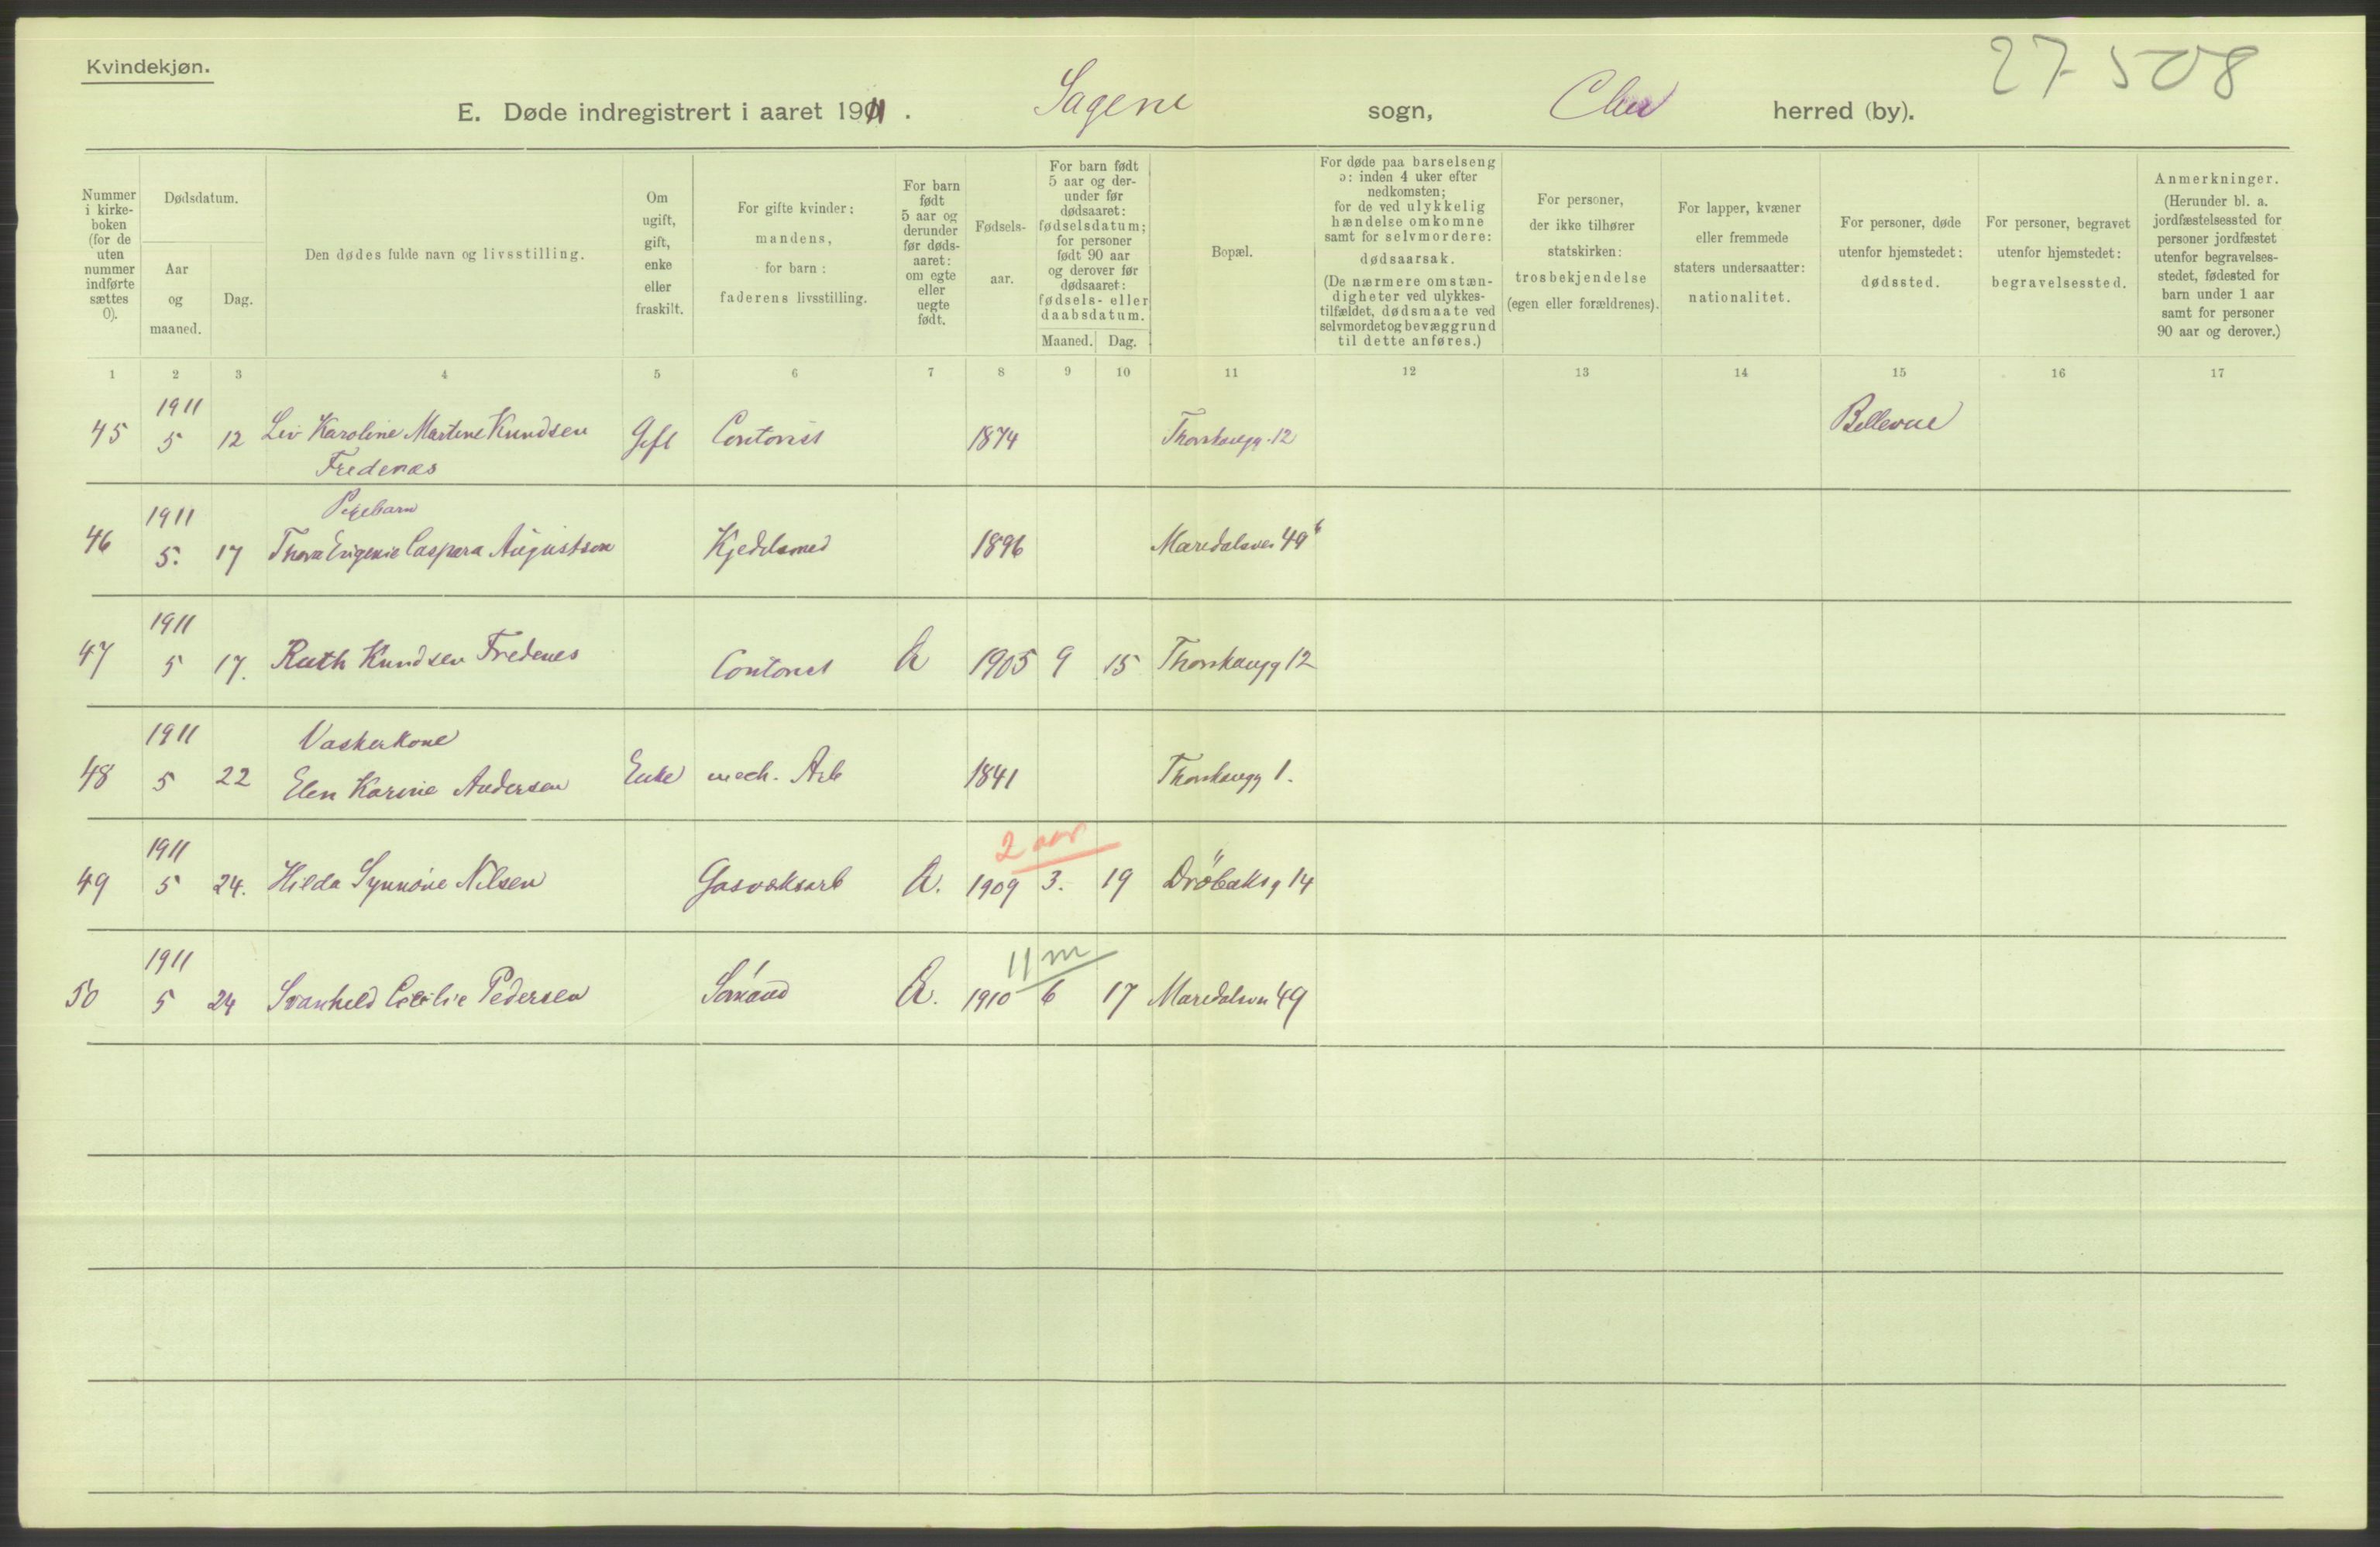 Kvindekjøn.
27 508
E. Døde indregistrert i aaret 1911. Sagene sogn, Chra herred (by).
Nummer i kirke-boken (for de uten nummer indførte sættes 0).
Dødsdatum.
Aar og maaned.
Dag.
Den dødes fulde navn og livsstilling.
Om ugift, gift, enke eller fraskilt.
For gifte kvinder: mandens, for barn: faderens livsstilling.
For barn født 5 aar og derunder før døds-aaret: om egte eller uegte født.
Fødsels-aar.
For barn født 5 aar og der-under før dødsaaret: fødselsdatum; for personer født 90 aar og derover før dødsaaret: fødsels- eller daabsdatum.
Maaned. Dag.
Bopæl.
For døde paa barselseng ɔ: inden 4 uker efter nedkomsten; for de ved ulykkelig hændelse omkomne samt for selvmordere: dødsaarsak. (De nærmere omstæn-digheter ved ulykkes-tilfældet, dødsmaate ved selvmordet og bevæggrund til dette anføres.)
For personer, der ikke tilhører statskirken: trosbekjendelse (egen eller forældrenes).
For lapper, kvæner eller fremmede staters undersaatter: nationalitet.
For personer, døde utenfor hjemstedet: dødssted.
For personer, begravet utenfor hjemstedet: begravelsessted.
Anmerkninger. (Herunder bl. a. jordfæstelsessted for personer jordfæstet utenfor begravelses-stedet, fødested for barn under 1 aar samt for personer 90 aar og derover.)
1 2 3 4 5 6 7 8 9 10 11 12 13 14 15 16 17
1911
45 5 12 Liv Karoline Martine Knudsen Gift Contorist 1874 Thorshaugg. 12 Bellevue
Fredenæs
1911 Pigebarn
46 5. 17 Thora Eugenie Caspara Augustson Kjedelsmed 1896 Maridalsvei 49 b
1911
47 5 17. Ruth Knudsen Fredenes Contorist A 1905 9 15 Thorshaugg 12
1911 Vaskerkone
48 5 22 Elen Karine Andersen Enke mech. Arb 1841 Thorshaugg 1.
1911 2 aar
49 5 24. Hilda Synnöve Nilsen Gasværksarb A. 1909 3. 19 Dröbaksg 14
1911 11 m
50 5 24 Svanhild Cecilie Pedersen Sømand A. 1910 6 17 Maridalsvn 49